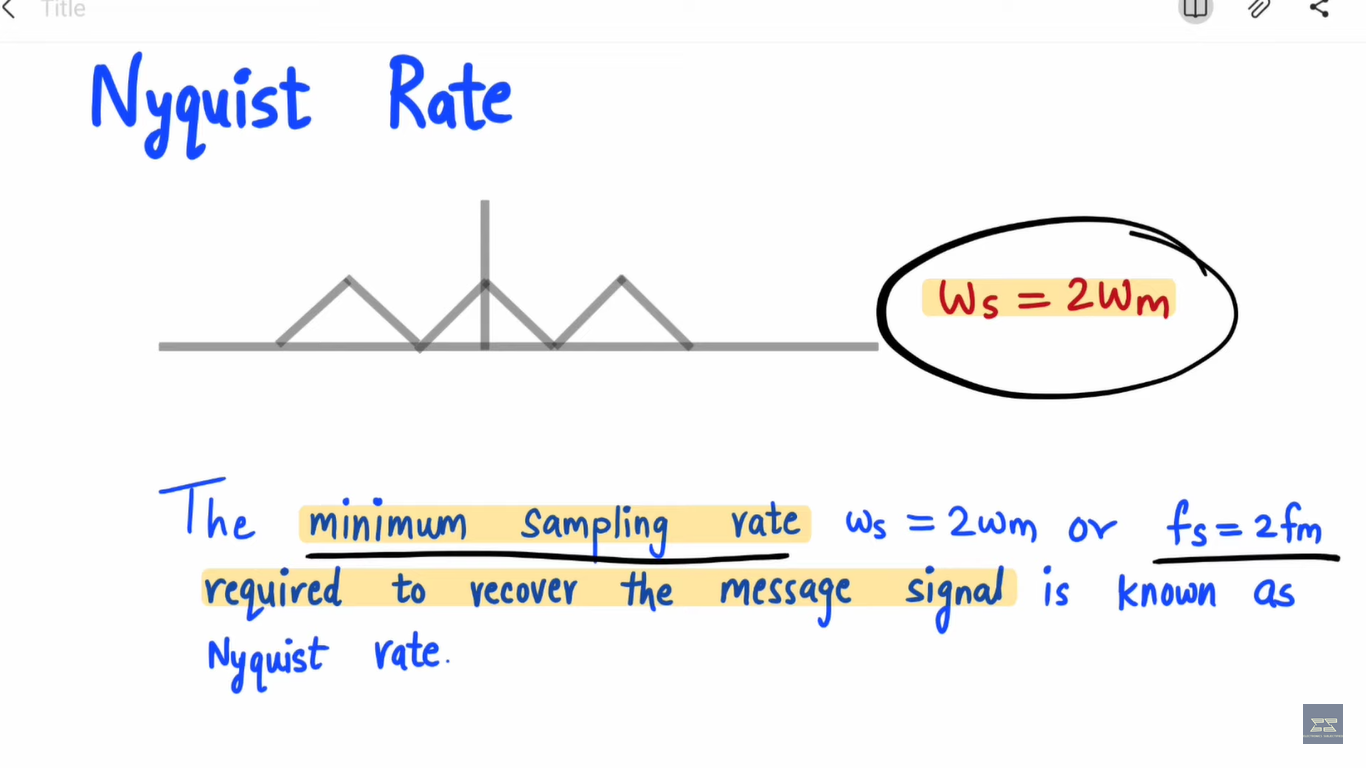 Title
Nyquist Rate
ws = 2wm
The minimum sampling rate ws = 2wm or fs = 2fm
required to recover the message signal is known as
Nyquist rate.